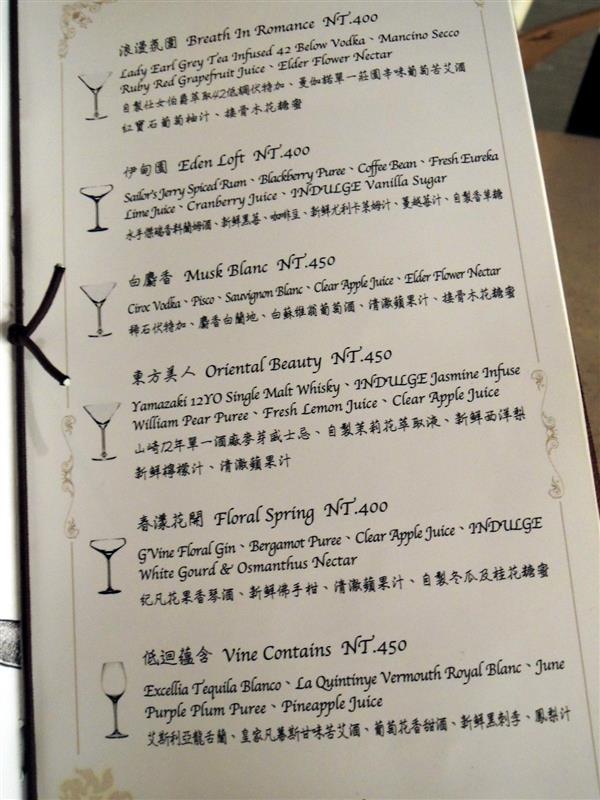 浪漫氛圍 Breath In Romance NT.400
Lady Earl Grey Tea Infused 42 Below Vodka、Mancino Secco
Ruby Red Grapefruit Juice、Elder Flower Nectar
自製仕女伯爵萃取42低調伏特加、曼伽諾單一莊園辛味葡萄苦艾酒
紅寶石葡萄柚汁、接骨木花糖蜜
伊甸園 Eden Loft NT.400
Sailor's Jerry Spiced Rum、Blackberry Puree、Coffee Bean、Fresh Eureka
Lime Juice、Cranberry Juice、INDULGE Vanilla Sugar
水手傑瑞香料蘭姆酒、新鮮黑莓、咖啡豆、新鮮尤利卡萊姆汁、蔓越莓汁、自製香草糖
白麝香 Musk Blanc NT.450
Ciroc Vodka、Pisco、Sauvignon Blanc、Clear Apple Juice、Elder Flower Nectar
稀石伏特加、麝香白蘭地、白蘇維翁葡萄酒、清澈蘋果汁、接骨木花糖蜜
東方美人 Oriental Beauty NT.450
Yamazaki 12YO Single Malt Whisky、INDULGE Jasmine Infuse
William Pear Puree、Fresh Lemon Juice、Clear Apple Juice
山崎12年單一酒廠麥芽威士忌、自製茉莉花萃取液、新鮮西洋梨
新鮮檸檬汁、清澈蘋果汁
春漾花開 Floral Spring NT.400
G'Vine Floral Gin、Bergamot Puree、Clear Apple Juice、INDULGE
White Gourd & Osmanthus Nectar
紀凡花果香琴酒、新鮮佛手柑、清澈蘋果汁、自製冬瓜及桂花糖蜜
低迴蘊含 Vine Contains NT.450
Excellia Tequila Blanco、La Quintinye Vermouth Royal Blanc、June
Purple Plum Puree、Pineapple Juice
艾斯利亞龍舌蘭、皇家凡慕斯甘味苦艾酒、葡萄花香甜酒、新鮮黑刺李、鳳梨汁